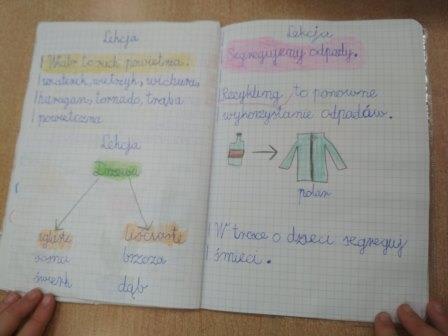 Lekcja
Wiatr to ruch powietrza.
wiaterek, wietrzyk, wichura,
huragan, tornado, trąba
powietrzna
Lekcja
Drzewa
iglaste liściaste
sosna brzoza
świerk dąb
Lekcja
Segregujemy odpady.
Recykling to ponowne
wykorzystanie odpadów.
polar
W trosce o dzieci segreguj
śmieci.